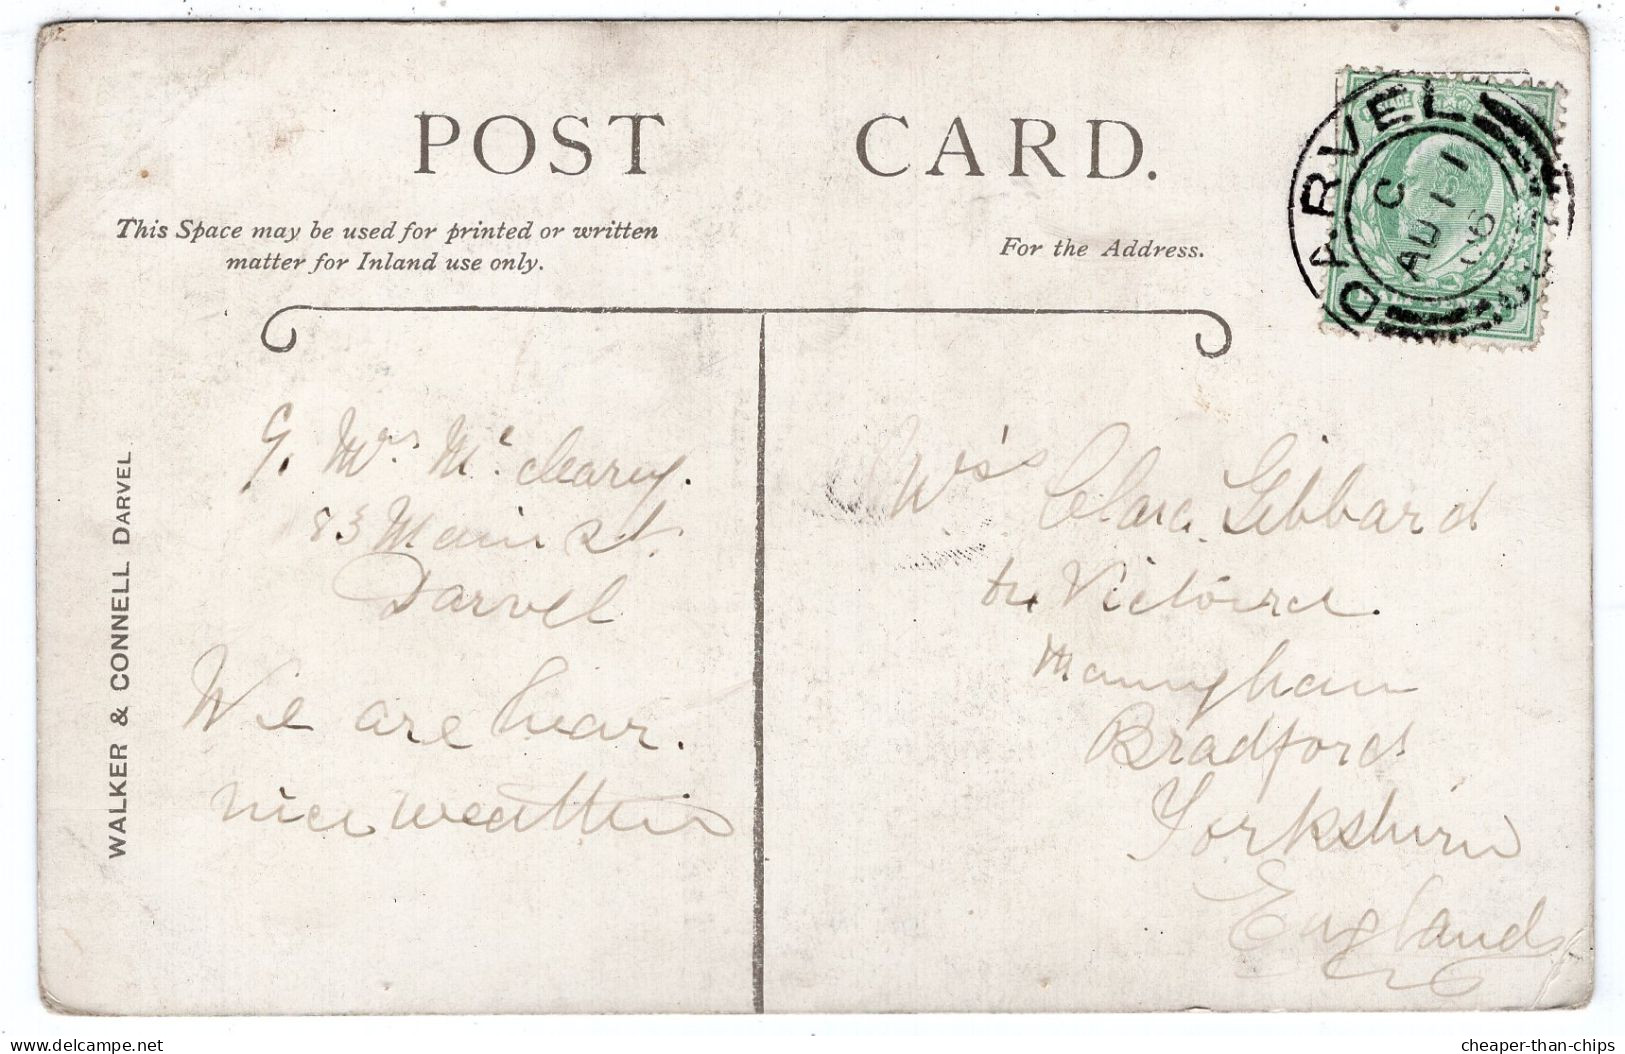 POST CARD.
This Space may be used for printed or written
matter for Inland use only.
For the Address.
DARVEL
C
AU 11
06
WALKER & CONNELL DARVEL
Mrs Mc cleary.
83 Main st.
Darvel
We are hear.
nice weather
Miss Clara Gibbard
Manngham
Bradford
Yorkshire
England
delcampe.net
cheaper-than-chips